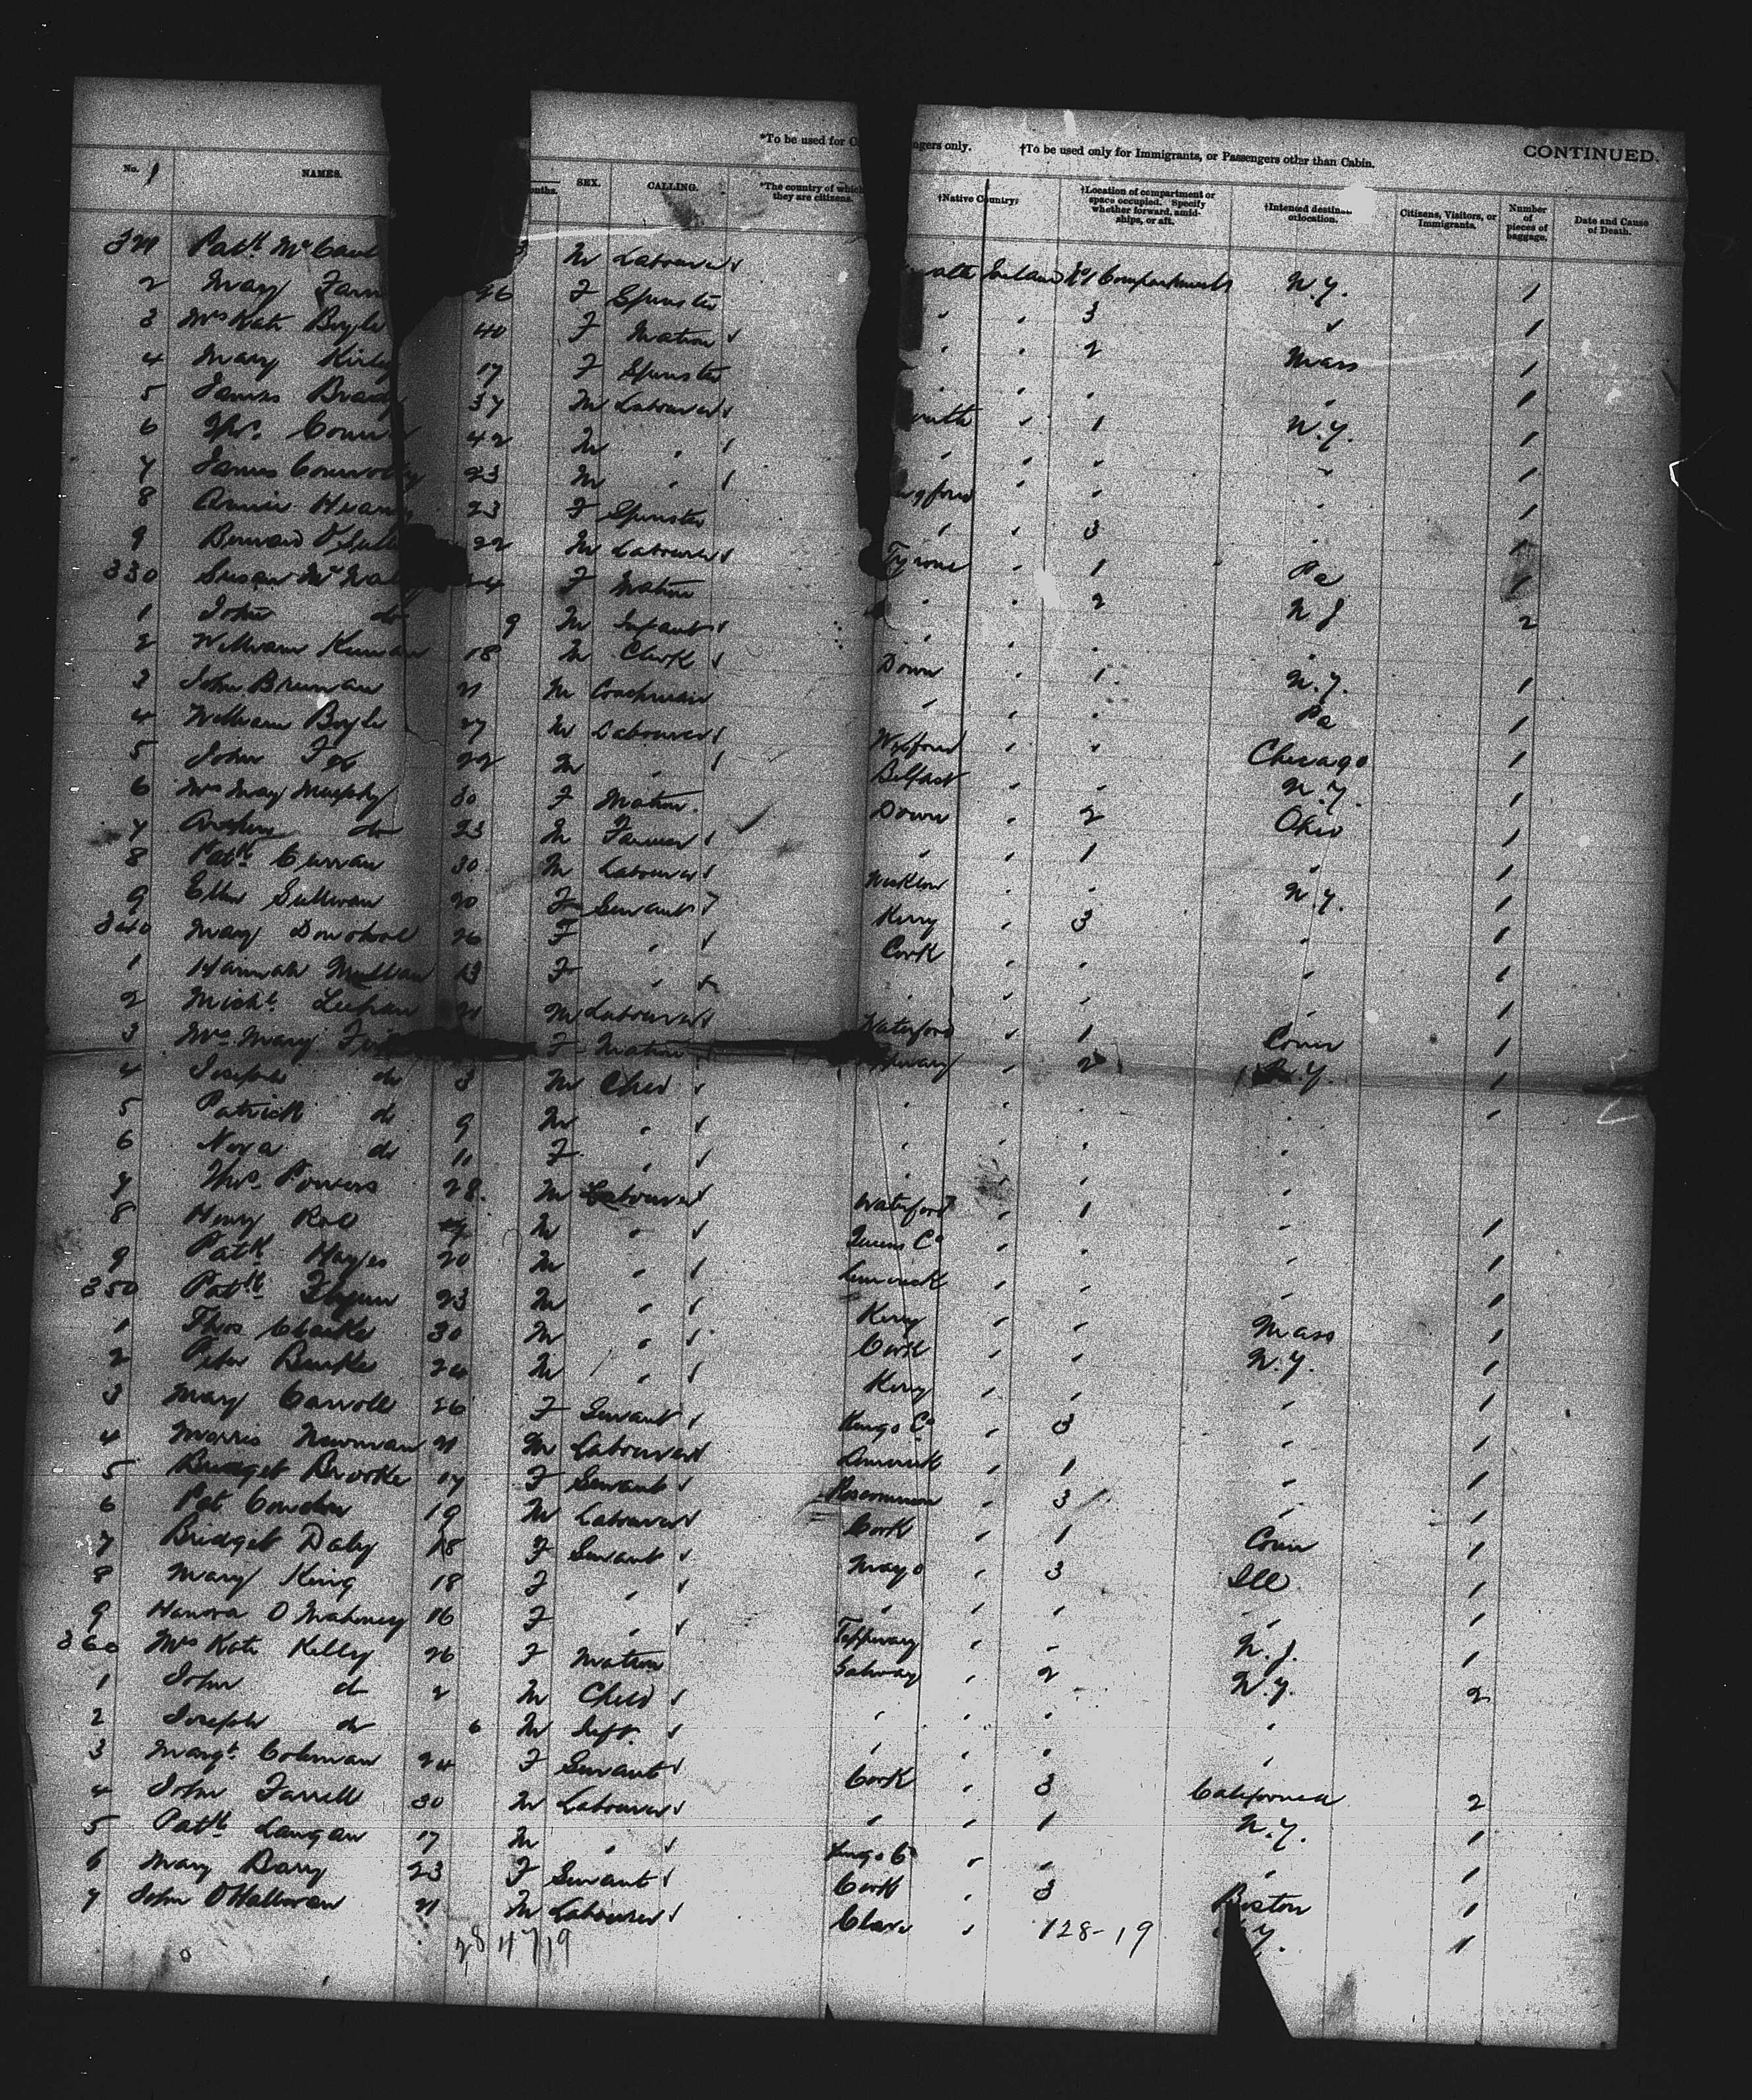 *To be used for C
ngers only. †To be used only for Immigrants, or Passengers other than Cabin. CONTINUED.
No. NAMES. onths. SEX. CALLING. *The country of which they are citizens. †Native Country. †Location of compartment or space occupied. Specify whether forward, amidships, or aft. †Intended destin orlocation. Citizens, Visitors, or Immigrants. Number of pieces of baggage. Date and Cause of Death.
321 Patk. McCaul M Labourer Ireland No 1 Compartment N.Y. 1
2 Mary Farr 26 F Spinster " " 3 " 1
3 Mrs Kate Boyle 40 F Matron " " 2 Mass 1
4 Mary Kirby 17 F Spinster " " " " 1
5 James Brady 37 M Labourer " 1 N.Y. 1
6 Thos. 42 M " " " " " 1
7 James Connolly 23 M " " " " 1
8 Annie 23 F Spinster " " 3 " 1
9 Bernard O'Sull 22 M Labourer Tyrone " 1 Pa 1
330 Susan F Matron " " 2 N J 2
1 John do 9 M Infant " " "
2 William 18 M Clerk Down " 1 N.Y. 1
3 John Brennan 21 M Coachman " " " Pa 1
4 William Boyle 27 M Labourer Wexford " " Chicago 1
5 John Fox 22 M " Belfast " " N.Y. 1
6 Mrs May Murphy 30 F Matron Down " 2 Ohio 1
7 do 23 M Farmer " " 1 " 1
8 Patk Curran 30 M Labourer Wicklow " " N.Y. 1
9 Ellen Sullivan 20 F Servant Kerry " 3 " 1
340 Mary 26 F " Cork " " " 1
1 Hannah 13 F " " " " " 1
2 Michl. 21 M Labourer Waterford " 1 Conn 1
3 Mrs. Mary F Matron " 2 N.Y. 1
4 Joseph do 3 M Child " " " " 1
5 Patrick do 9 M " " " " "
6 Nora do 11 F " " " "
7 Thos. Powers 28 M Labourer Waterford " 1 " 1
8 Henry M " Queens Co " " " 1
9 Patk Hayes 20 M " Limerick " " " 1
350 Patk Flynn 23 M " Kerry " " Mass 1
1 Thos Clarke 30 M " Cork " " N.Y. 1
2 Peter Burke 24 M " Kerry " " " 1
3 Mary Carroll 26 F Servant Kings Co " 3 " 1
4 Morris Newman 21 M Labourer Limerick " 1 " 1
5 Bridget Brooke 17 F Servant Roscommon " 3 " 1
6 Pat 19 M Labourer Cork " 1 Conn 1
7 Bridget Daly 18 F Servant Mayo " 3 Ill 1
8 Mary King 18 F " " " " " 1
9 Hanora O Mahoney 16 F " Tipperary " " N.J. 1
360 Mrs Kate Kelly 26 F Matron Galway " 2 N.Y. 2
1 John do 2 M Child " " " "
2 Joseph do 6 M Inft. " " " "
3 Margt. Coleman 24 F Servant Cork " 3 California 2
4 John Farrell 30 M Labourer " " 1 N.Y. 1
5 Patk Langan 17 M " Kings Co " " " 1
6 Mary Barry 23 F Servant Cork " 3 Boston 1
7 John O'Halloran 21 M Labourer Clare " Y. 1
128-19